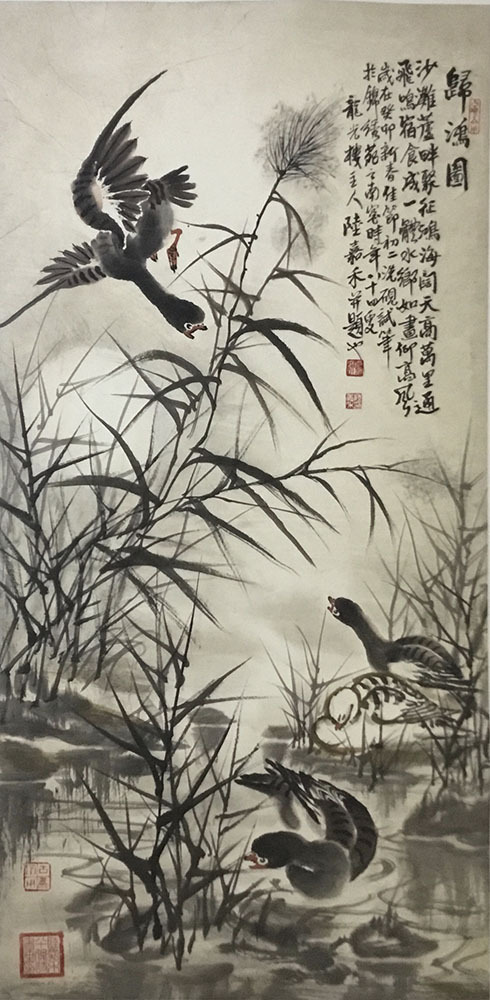 歸鴻圖
沙灘蘆畔聚征鴻海闊天高萬里通
飛鳴宿食成一體水鄉如畫仰高風
歲在癸卯新春佳節初二洗硯試筆
於錦綉苑之南窗時年八十四叟
龍光樓主人陸嘉禾并題